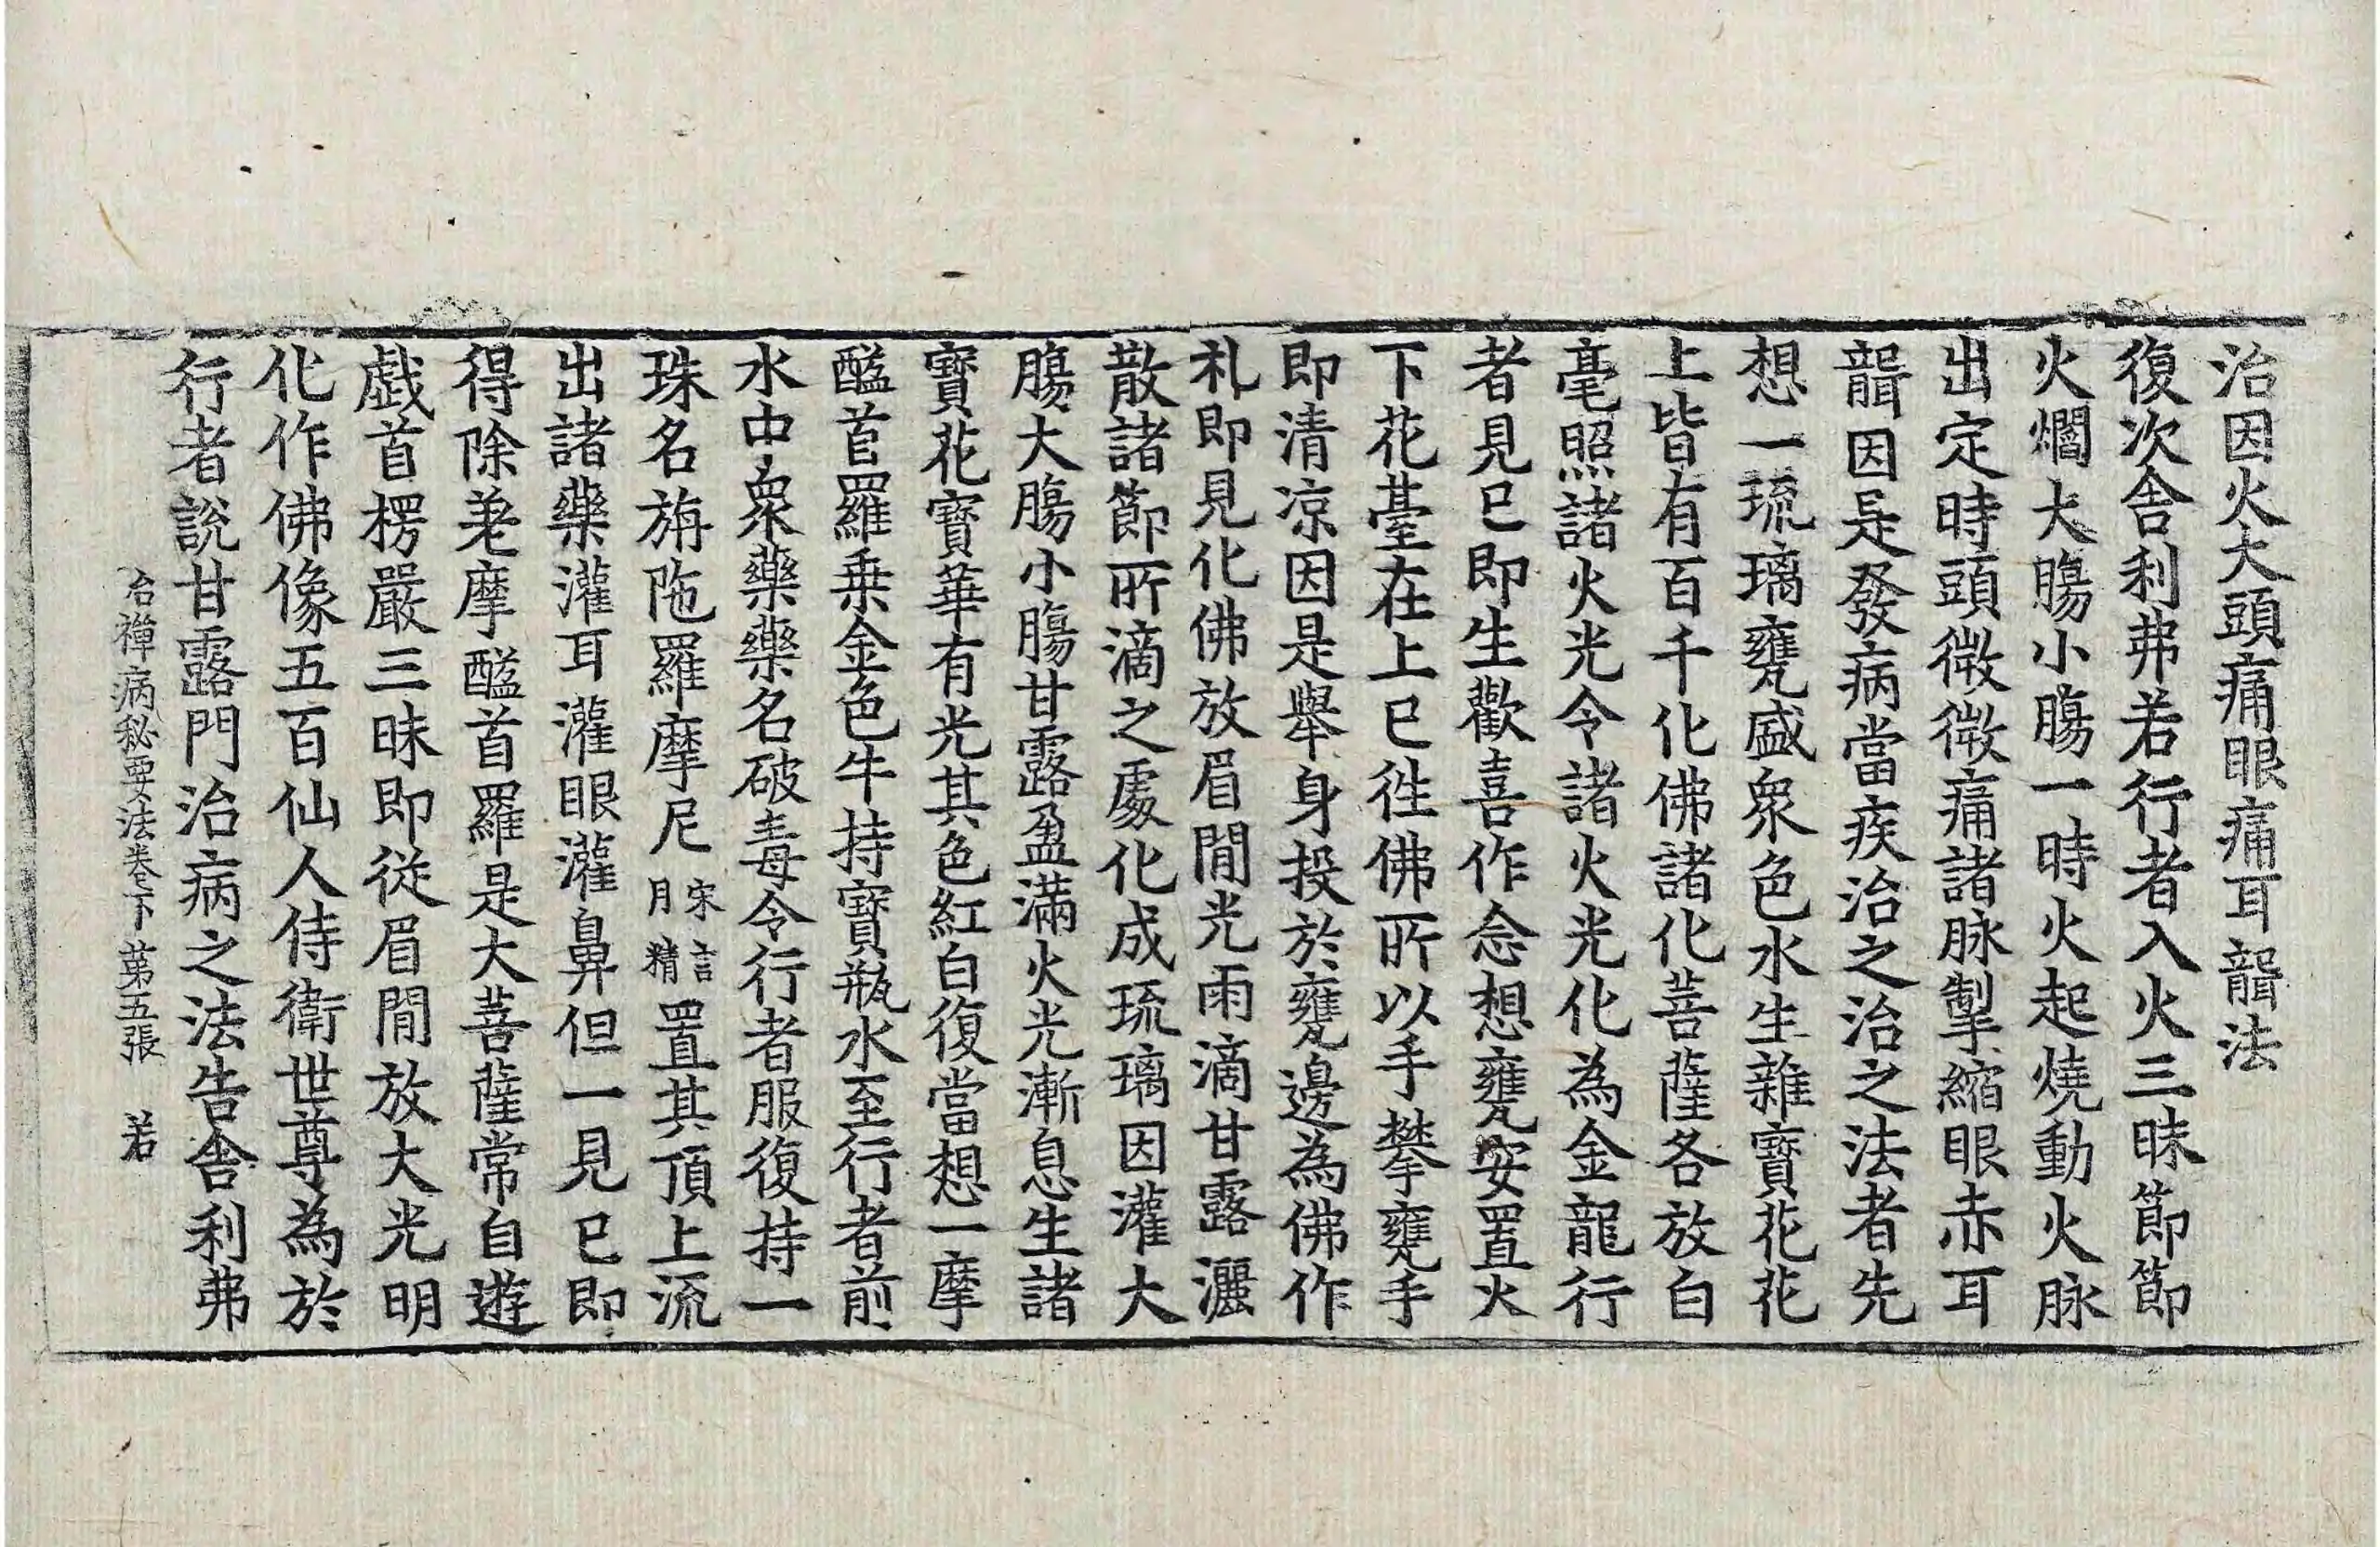 治因火大頭痛眼痛耳聾法
復次舍利弗若行者入火三昧節節
火爓大膓小膓一時火起燒動火脉
出定時頭微微痛諸脉掣縮眼赤耳
聾因是發病當疾治之治之法者先
想一琉璃甕盛衆色水生雜寶花花
上皆有百千化佛諸化菩薩各放白
毫照諸火光令諸火光化為金龍行
者見已即生歡喜作念想甕安置火
下花臺在上已徃佛所以手攀甕手
即清涼因是舉身投於甕邊為佛作
札即見化佛放眉間光雨滴甘露灑
散諸節所滴之處化成琉璃因灌大
膓大膓小膓甘露盈滿火光漸息生諸
寶花寶華有光其色紅白復當想一摩
醯首羅乗金色牛持寶瓶水至行者前
水中衆藥藥名破毒令行者服復持一
珠名旃陁羅摩尼宋言月精置其頂上流
出諸藥灌耳灌眼灌鼻但一見已即
得除差摩醯首羅是大菩薩常自遊
戱首楞嚴三昧即從眉間放大光明
化作佛像五百仙人侍衛世尊為於
行者說甘露門治病之法告舍利弗
治禪病秘要法卷下 第五張 若